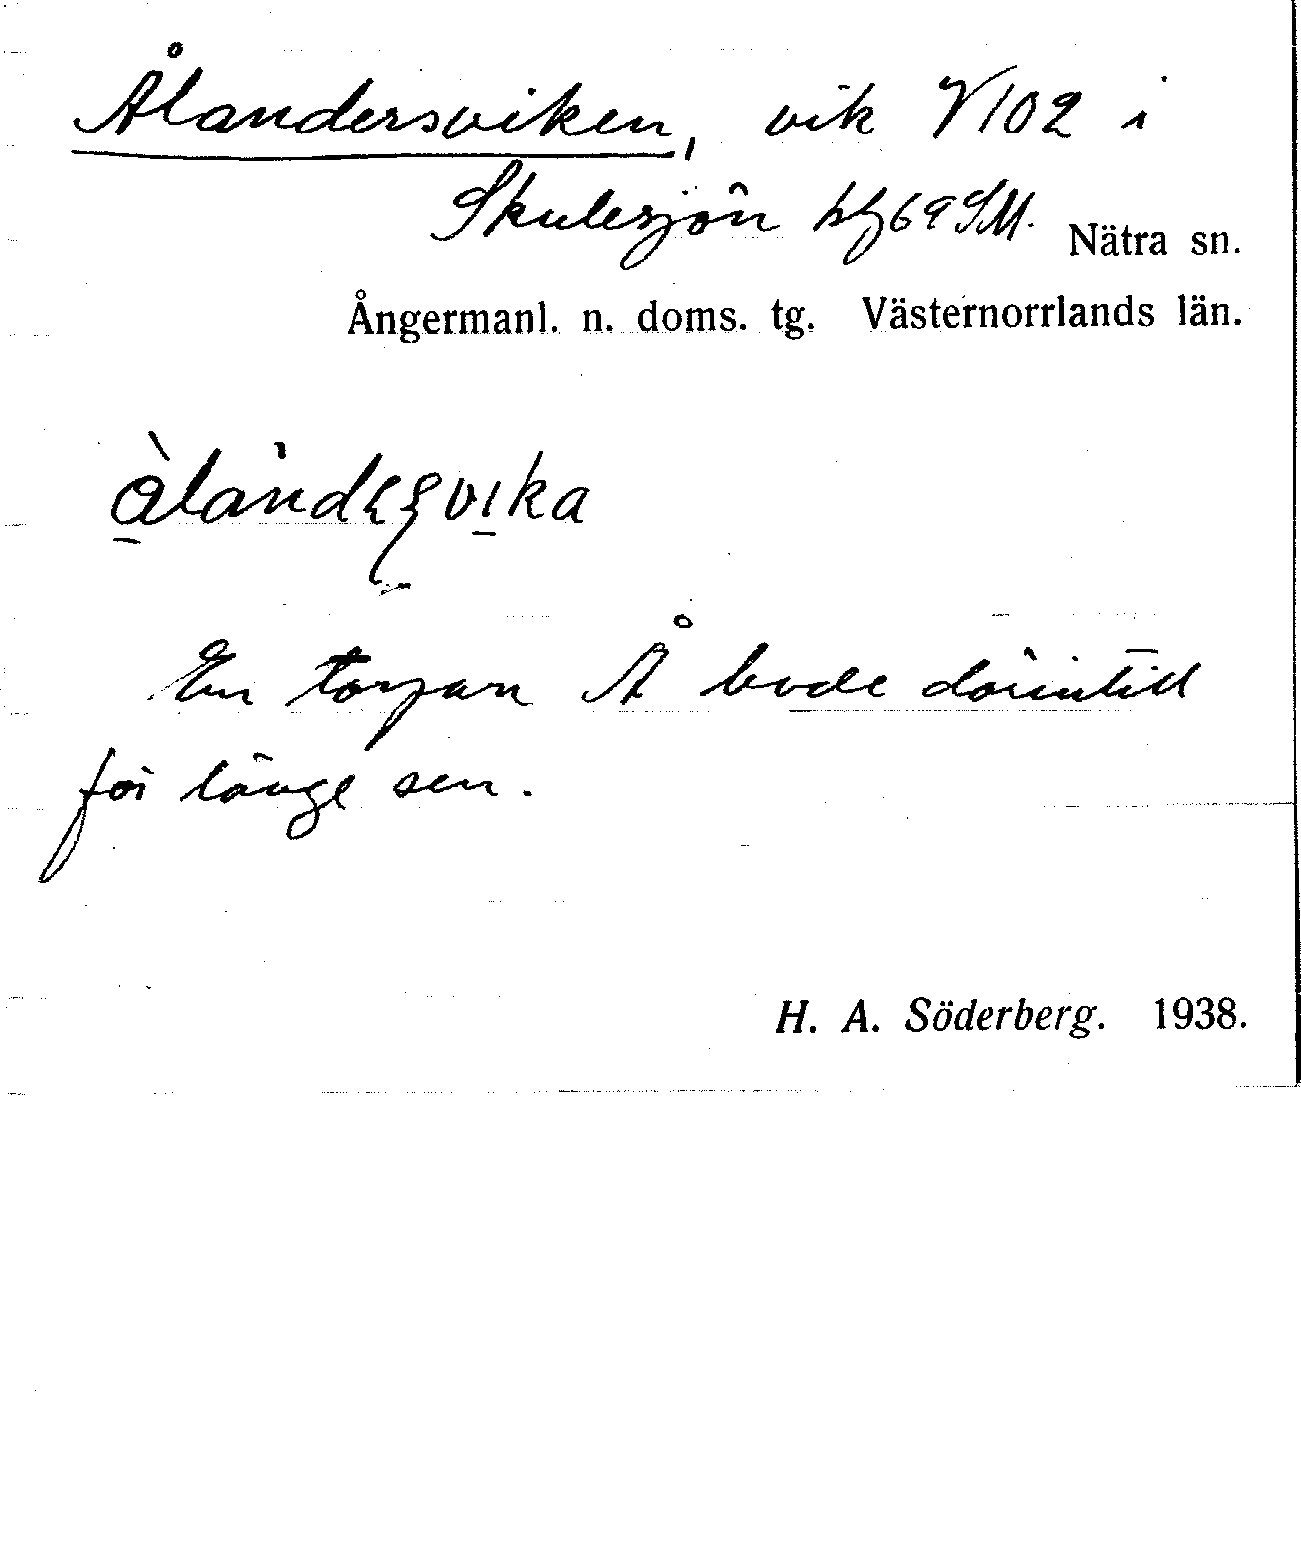 Ålandersviken, vik V 102 i
Skulesjön bl 69 SM. Nätra sn.
Ångermanl. n. doms. tg. Västernorrlands län.
En torpare Å bode därintill
för länge sen.
H. A. Söderberg. 1938.